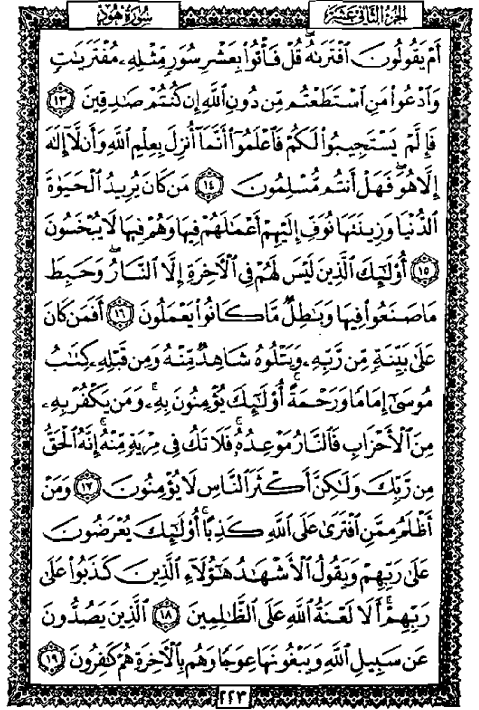 سُورَةُ هُودٍ
الجُزءُ الثَّانِي عَشَرَ
أَمْ يَقُولُونَ ٱفْتَرَىٰهُ ۖ قُلْ فَأْتُوا۟ بِعَشْرِ سُوَرٍ مِّثْلِهِۦ مُفْتَرَيَٰتٍ
وَٱدْعُوا۟ مَنِ ٱسْتَطَعْتُم مِّن دُونِ ٱللَّهِ إِن كُنتُمْ صَٰدِقِينَ ١٣
فَإِلَّمْ يَسْتَجِيبُوا۟ لَكُمْ فَٱعْلَمُوٓا۟ أَنَّمَآ أُنزِلَ بِعِلْمِ ٱللَّهِ وَأَن لَّآ إِلَٰهَ
إِلَّا هُوَ ۖ فَهَلْ أَنتُم مُّسْلِمُونَ ١٤ مَن كَانَ يُرِيدُ ٱلْحَيَوٰةَ
ٱلدُّنْيَا وَزِينَتَهَا نُوَفِّ إِلَيْهِمْ أَعْمَٰلَهُمْ فِيهَا وَهُمْ فِيهَا لَا يُبْخَسُونَ
١٥ أُو۟لَٰٓئِكَ ٱلَّذِينَ لَيْسَ لَهُمْ فِى ٱلْءَاخِرَةِ إِلَّا ٱلنَّارُ ۖ وَحَبِطَ
مَا صَنَعُوا۟ فِيهَا وَبَٰطِلٌ مَّا كَانُوا۟ يَعْمَلُونَ ١٦ أَفَمَن كَانَ
عَلَىٰ بَيِّنَةٍ مِّن رَّبِّهِۦ وَيَتْلُوهُ شَاهِدٌ مِّنْهُ وَمِن قَبْلِهِۦ كِتَٰبُ
مُوسَىٰٓ إِمَامًا وَرَحْمَةً ۚ أُو۟لَٰٓئِكَ يُؤْمِنُونَ بِهِۦ ۚ وَمَن يَكْفُرْ بِهِۦ
مِنَ ٱلْأَحْزَابِ فَٱلنَّارُ مَوْعِدُهُۥ ۚ فَلَا تَكُ فِى مِرْيَةٍ مِّنْهُ ۚ إِنَّهُ ٱلْحَقُّ
مِن رَّبِّكَ وَلَٰكِنَّ أَكْثَرَ ٱلنَّاسِ لَا يُؤْمِنُونَ ١٧ وَمَنْ
أَظْلَمُ مِمَّنِ ٱفْتَرَىٰ عَلَى ٱللَّهِ كَذِبًا ۚ أُو۟لَٰٓئِكَ يُعْرَضُونَ
عَلَىٰ رَبِّهِمْ وَيَقُولُ ٱلْأَشْهَٰدُ هَٰٓؤُلَآءِ ٱلَّذِينَ كَذَبُوا۟ عَلَىٰ
رَبِّهِمْ ۚ أَلَا لَعْنَةُ ٱللَّهِ عَلَى ٱلظَّٰلِمِينَ ١٨ ٱلَّذِينَ يَصُدُّونَ
عَن سَبِيلِ ٱللَّهِ وَيَبْغُونَهَا عِوَجًا وَهُم بِٱلْءَاخِرَةِ هُمْ كَٰفِرُونَ ١٩
٢٢٣